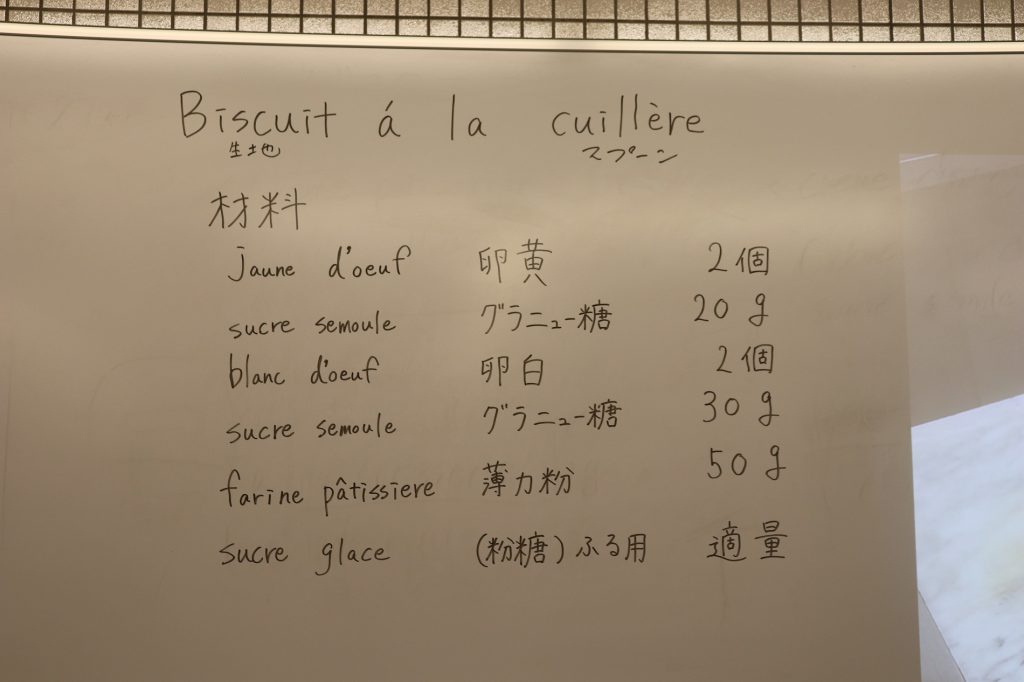 Biscuit á la cuillère
生地 スプーン
材料
jaune d'oeuf 卵黄 2個
sucre semoule グラニュー糖 20 g
blanc d'oeuf 卵白 2個
sucre semoule グラニュー糖 30 g
farine pâtissiere 薄力粉 50 g
sucre glace (粉糖) ふる用 適量